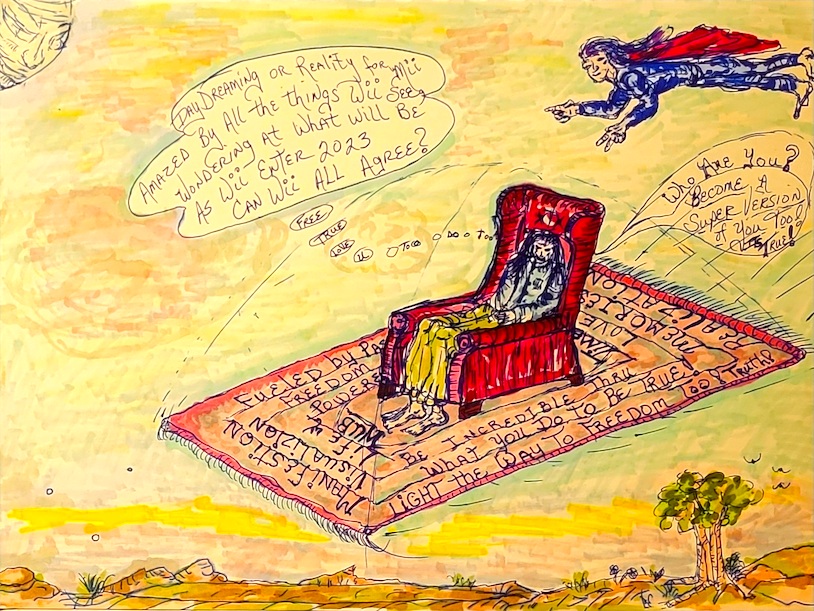 DayDreaming or Reality for Mii
Amazed By All the things Wii Seez
Wondering at What will Be
As Wii Enter 2023
Can Wii All Agree?
Free
True
Love
Who Are You?
Become A
Super Version
of You Too?
True!
Fueled by Pa
Freedom
Power
Manifestion
Visualizion
Be Incredible Thru
What You Do To Be True!
Light the Way To Freedom
Memories